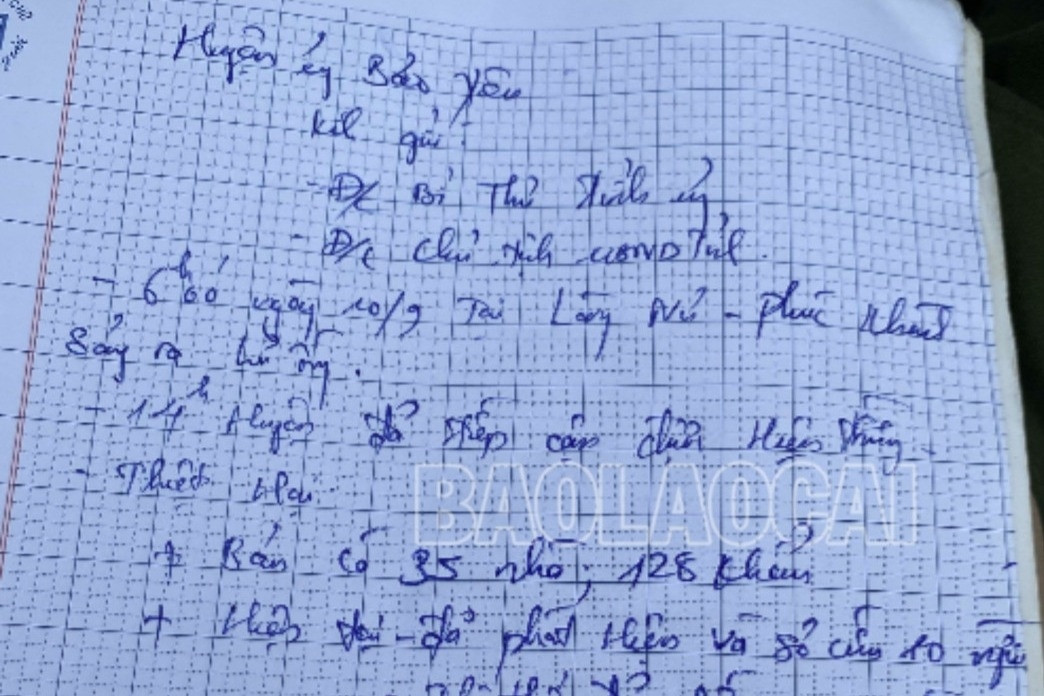 Huyện ủy Bảo Yên
Kính gửi:
- Đ/c Bí Thư Tỉnh ủy
- Đ/c Chủ tịch UBND Tỉnh.
- 6h00 ngày 10/9 Tại Làng Nủ - Phúc Khánh
Sảy ra lũ ống.
- 14h Huyện đã tiếp cận được Hiện Trường.
- Thiệt Hại
BAOLAOCAI
+ Bản có 35 nhà; 128 khẩu
+ Hiện tại - đã phát Hiện và sơ cứu 10 người